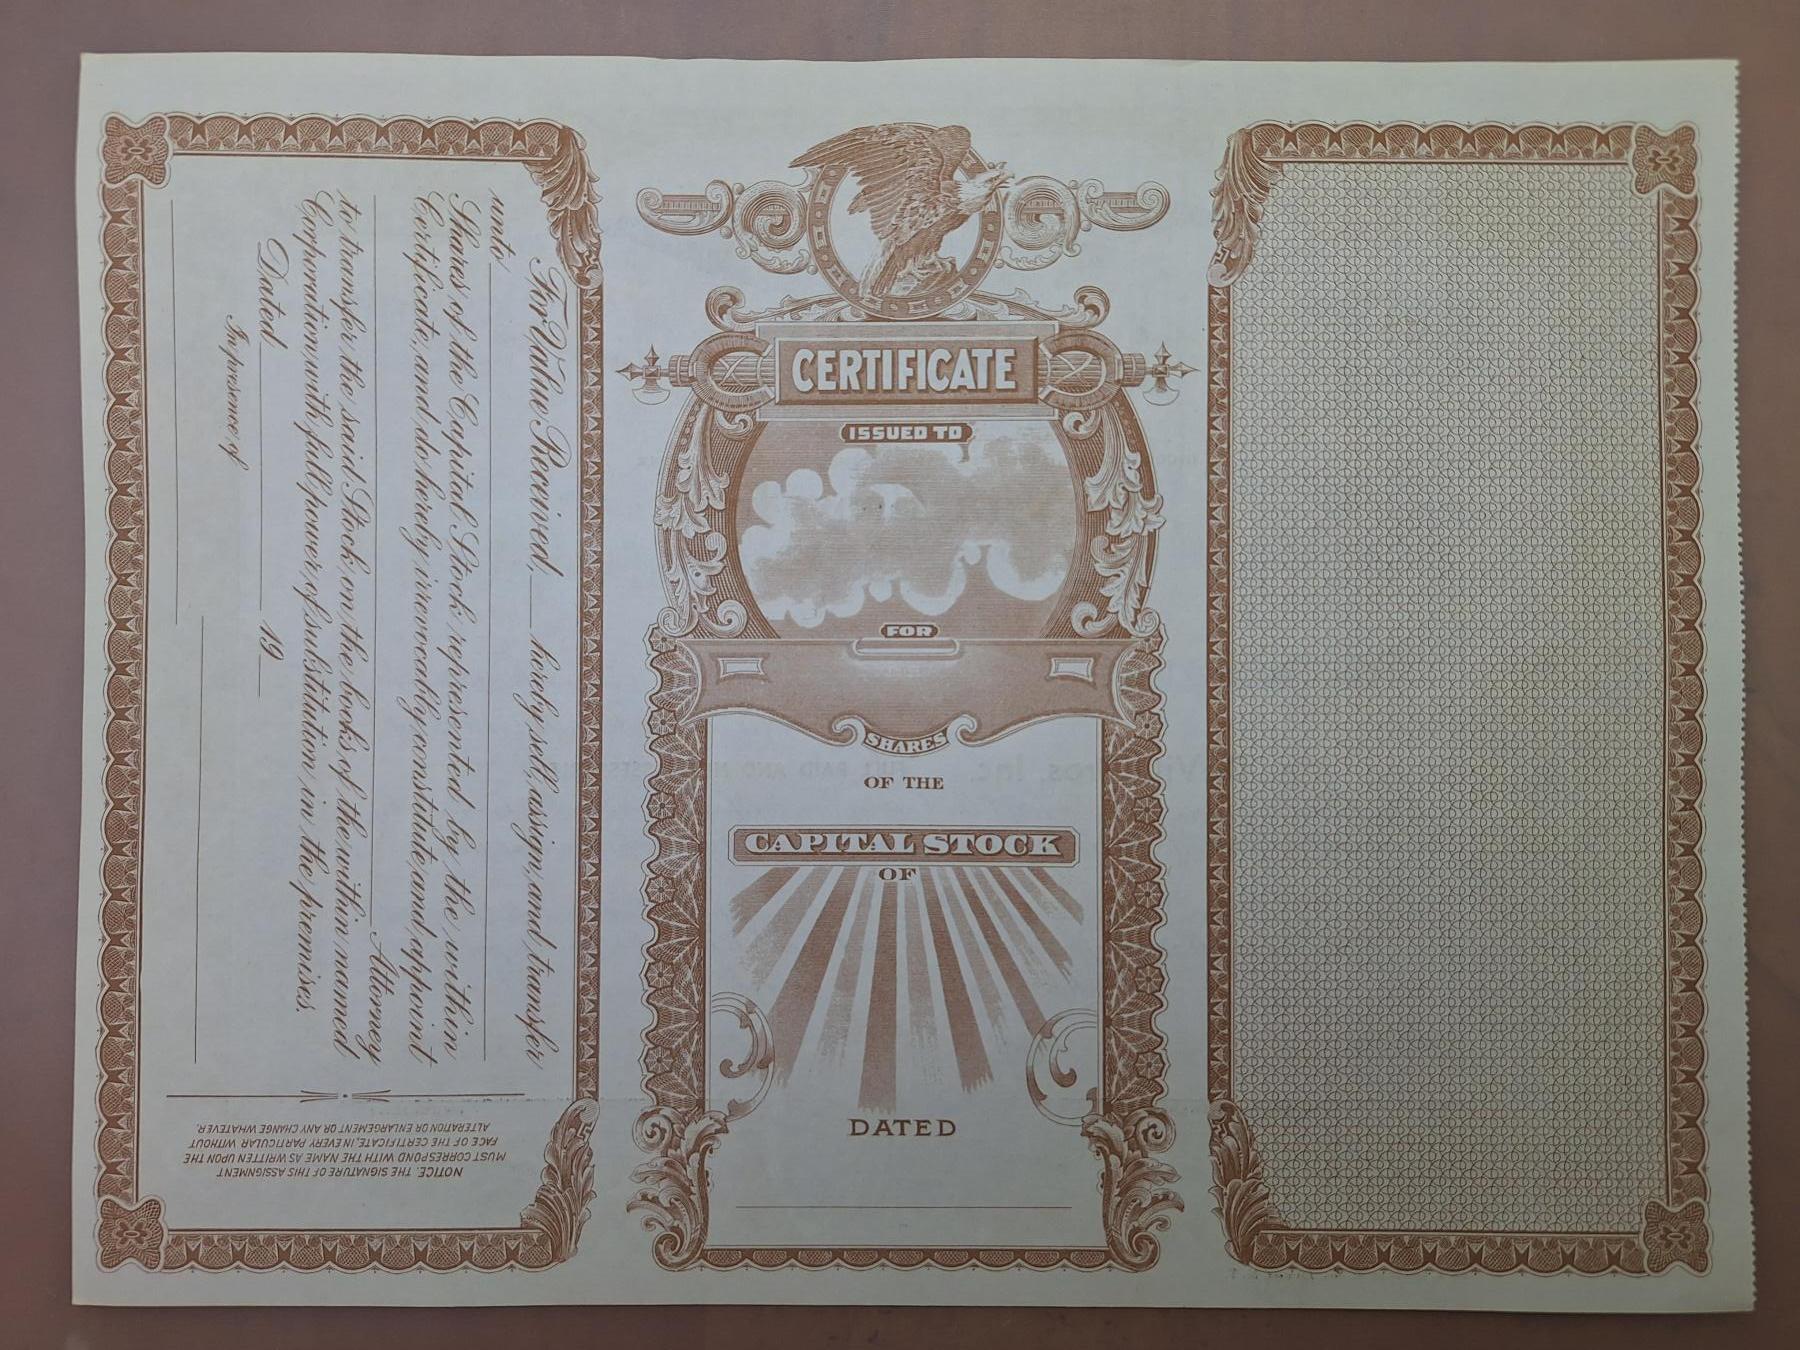 For Value Received, ___ hereby sell, assign, and transfer
unto
Shares of the Capital Stock represented by the within
Certificate, and do hereby irrevocably constitute and appoint
Attorney
to transfer the said Stock on the books of the within named
Corporation with full power of substitution in the premises.
Dated ___ 19__
In presence of
NOTICE. THE SIGNATURE OF THIS ASSIGNMENT
MUST CORRESPOND WITH THE NAME AS WRITTEN UPON THE
FACE OF THE CERTIFICATE, IN EVERY PARTICULAR WITHOUT
ALTERATION OR ENLARGEMENT OR ANY CHANGE WHATEVER.
CERTIFICATE
ISSUED TO
FOR
SHARES
OF THE
CAPITAL STOCK
OF
DATED